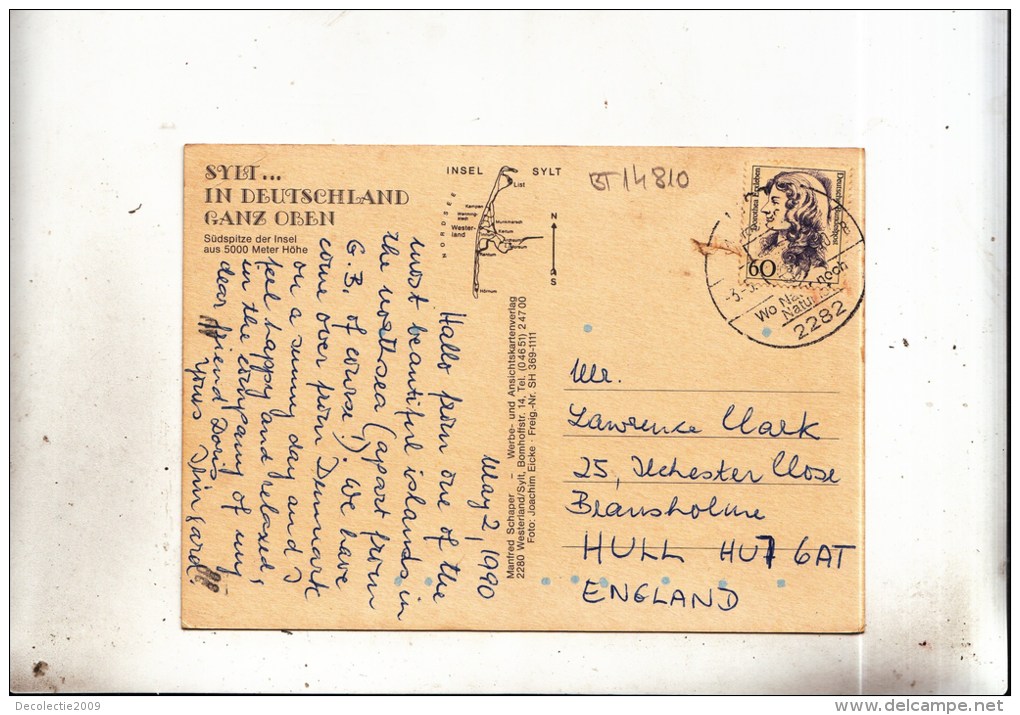 SYLT...
IN DEUTSCHLAND
GANZ OBEN
Südspitze der Insel
aus 5000 Meter Höhe
INSEL SYLT
List
Kampen
Wester-
land
Keitum
Hörnum
NORDSEE
N
S
BT 14810
Dorothea Erxleben
Deutsche Bundespost
60
Wo
noch
Natur
2282
May 2, 1990
Hallo from one of the
most beautiful islands in
the northsea (apart from
G.B. of course!). We have
come over from Denmark
on a sunny day and I
feel happy and relaxed,
in the company of my
dear friend Doris.
Yours Irmgard.
Manfred Schaper – Werbe- und Ansichtskartenverlag
2280 Westerland/Sylt, Bomhoffstr. 14, Tel. (04651) 24700
Foto: Joachim Eicke · Freig.-Nr. SH 369-1111
Mr.
Lawrence Clark
25, Ilchester Close
Bransholme
HULL HU7 6AT
ENGLAND
Decolectie2009
www.delcampe.net